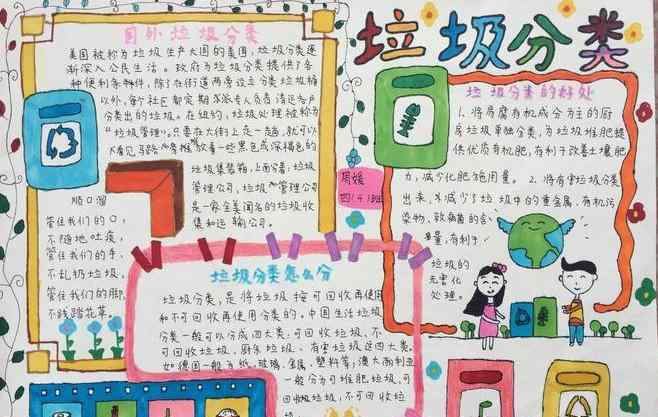 垃圾分类
国外垃圾分类
美国被称为垃圾生产大国的美国,垃圾分类逐
渐深入公民生活。政府为垃圾分类提供了各
种便利条件,除了在街道两旁设立分类垃圾桶
以外,每个社区都定期派专人负责清运各户
分类出的垃圾。在纽约,垃圾处理被称为
"垃圾管理"。只要在大街上走一走,就可以
看见马路旁放着一些黑色或深褐色的
垃圾集装箱,上面分着:垃圾
管理公司,垃圾管理公司
是一家全美闻名的垃圾收
集和运输公司。
顺口溜
管住我们的口,
不随地吐痰,
管住我们的手,
不乱扔垃圾,
管住我们的脚,
不践踏花草。
周媛
四(4)班
垃圾分类的好处
1、将易腐有机成分为主的厨
房垃圾单独分类,为垃圾堆肥提
供优质有机肥,有利于改善土壤肥
力,减少化肥施用量。2、将有害垃圾分类
出来,减少了垃圾中的重金属,有机污
染物,致病菌的含
量,有利于
垃圾的
无害化
处理。
垃圾分类怎么分
垃圾分类,是将垃圾按可回收再使用
和不可回收再使用分类的。中国生活垃圾
分类一般可以分成四大类:可回收垃圾、不
可回收垃圾、厨余垃圾、有害垃圾这四大类。
如德国一般为纸,玻璃,金属,塑料等;澳大利亚
一般分为可堆肥垃圾,可
回收垃圾,不可回收垃